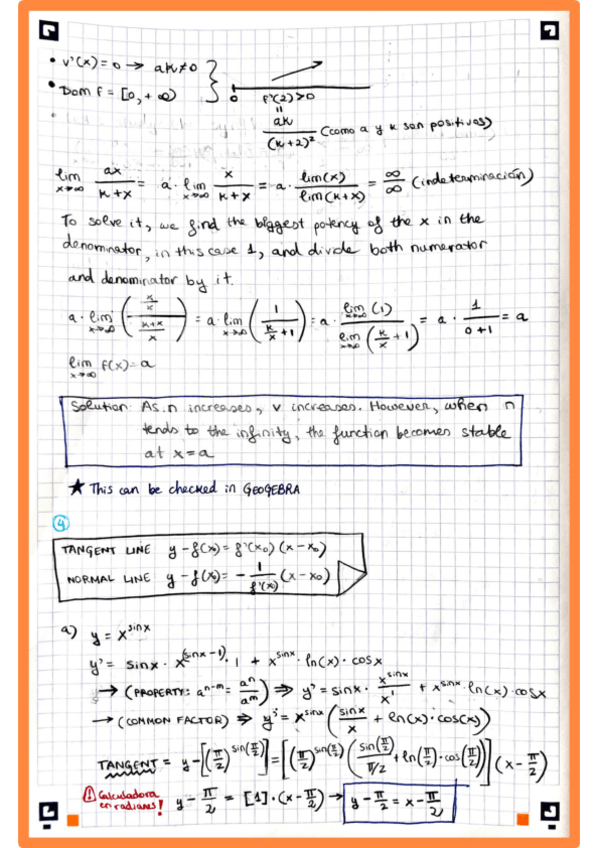 • v'(x) = 0 → ak ≠ 0
• Dom f = [0, +∞)
0 f'(2) > 0
= ak/(k+2)² (como a y k son positivos)
lim x→∞ ax/(k+x) = a · lim x→∞ x/(k+x) = a · lim(x)/lim(k+x) = ∞/∞ (indeterminación)
To solve it, we find the biggest potency of the x in the
denominator, in this case 1, and divide both numerator
and denominator by it.
a · lim x→∞ ((x/x)/((k+x)/x)) = a · lim x→∞ (1/(k/x + 1)) = a · lim x→∞ (1)/lim x→∞ (k/x + 1) = a · 1/(0+1) = a
lim x→∞ f(x) = a
Solution: As n increases, v increases. However, when n
tends to the infinity, the function becomes stable
at x = a
★ This can be checked in GEOGEBRA
4
TANGENT LINE y - f(x₀) = f'(x₀) (x - x₀)
NORMAL LINE y - f(x₀) = - 1/f'(x₀) (x - x₀)
a) y = x^sinx
y' = sinx · x^(sinx-1) · 1 + x^sinx · ln(x) · cosx
→ (PROPERTY: a^(n-m) = a^n/a^m) ⇒ y' = sinx · x^sinx/x¹ + x^sinx · ln(x) · cosx
→ (COMMON FACTOR) ⇒ y' = x^sinx (sinx/x + ln(x) · cos(x))
TANGENT = y - [(π/2)^sin(π/2)] = [(π/2)^sin(π/2) (sin(π/2)/(π/2) + ln(π/2) · cos(π/2))] (x - π/2)
! Calculadora
en radianes!
y - π/2 = [1] · (x - π/2) → y - π/2 = x - π/2